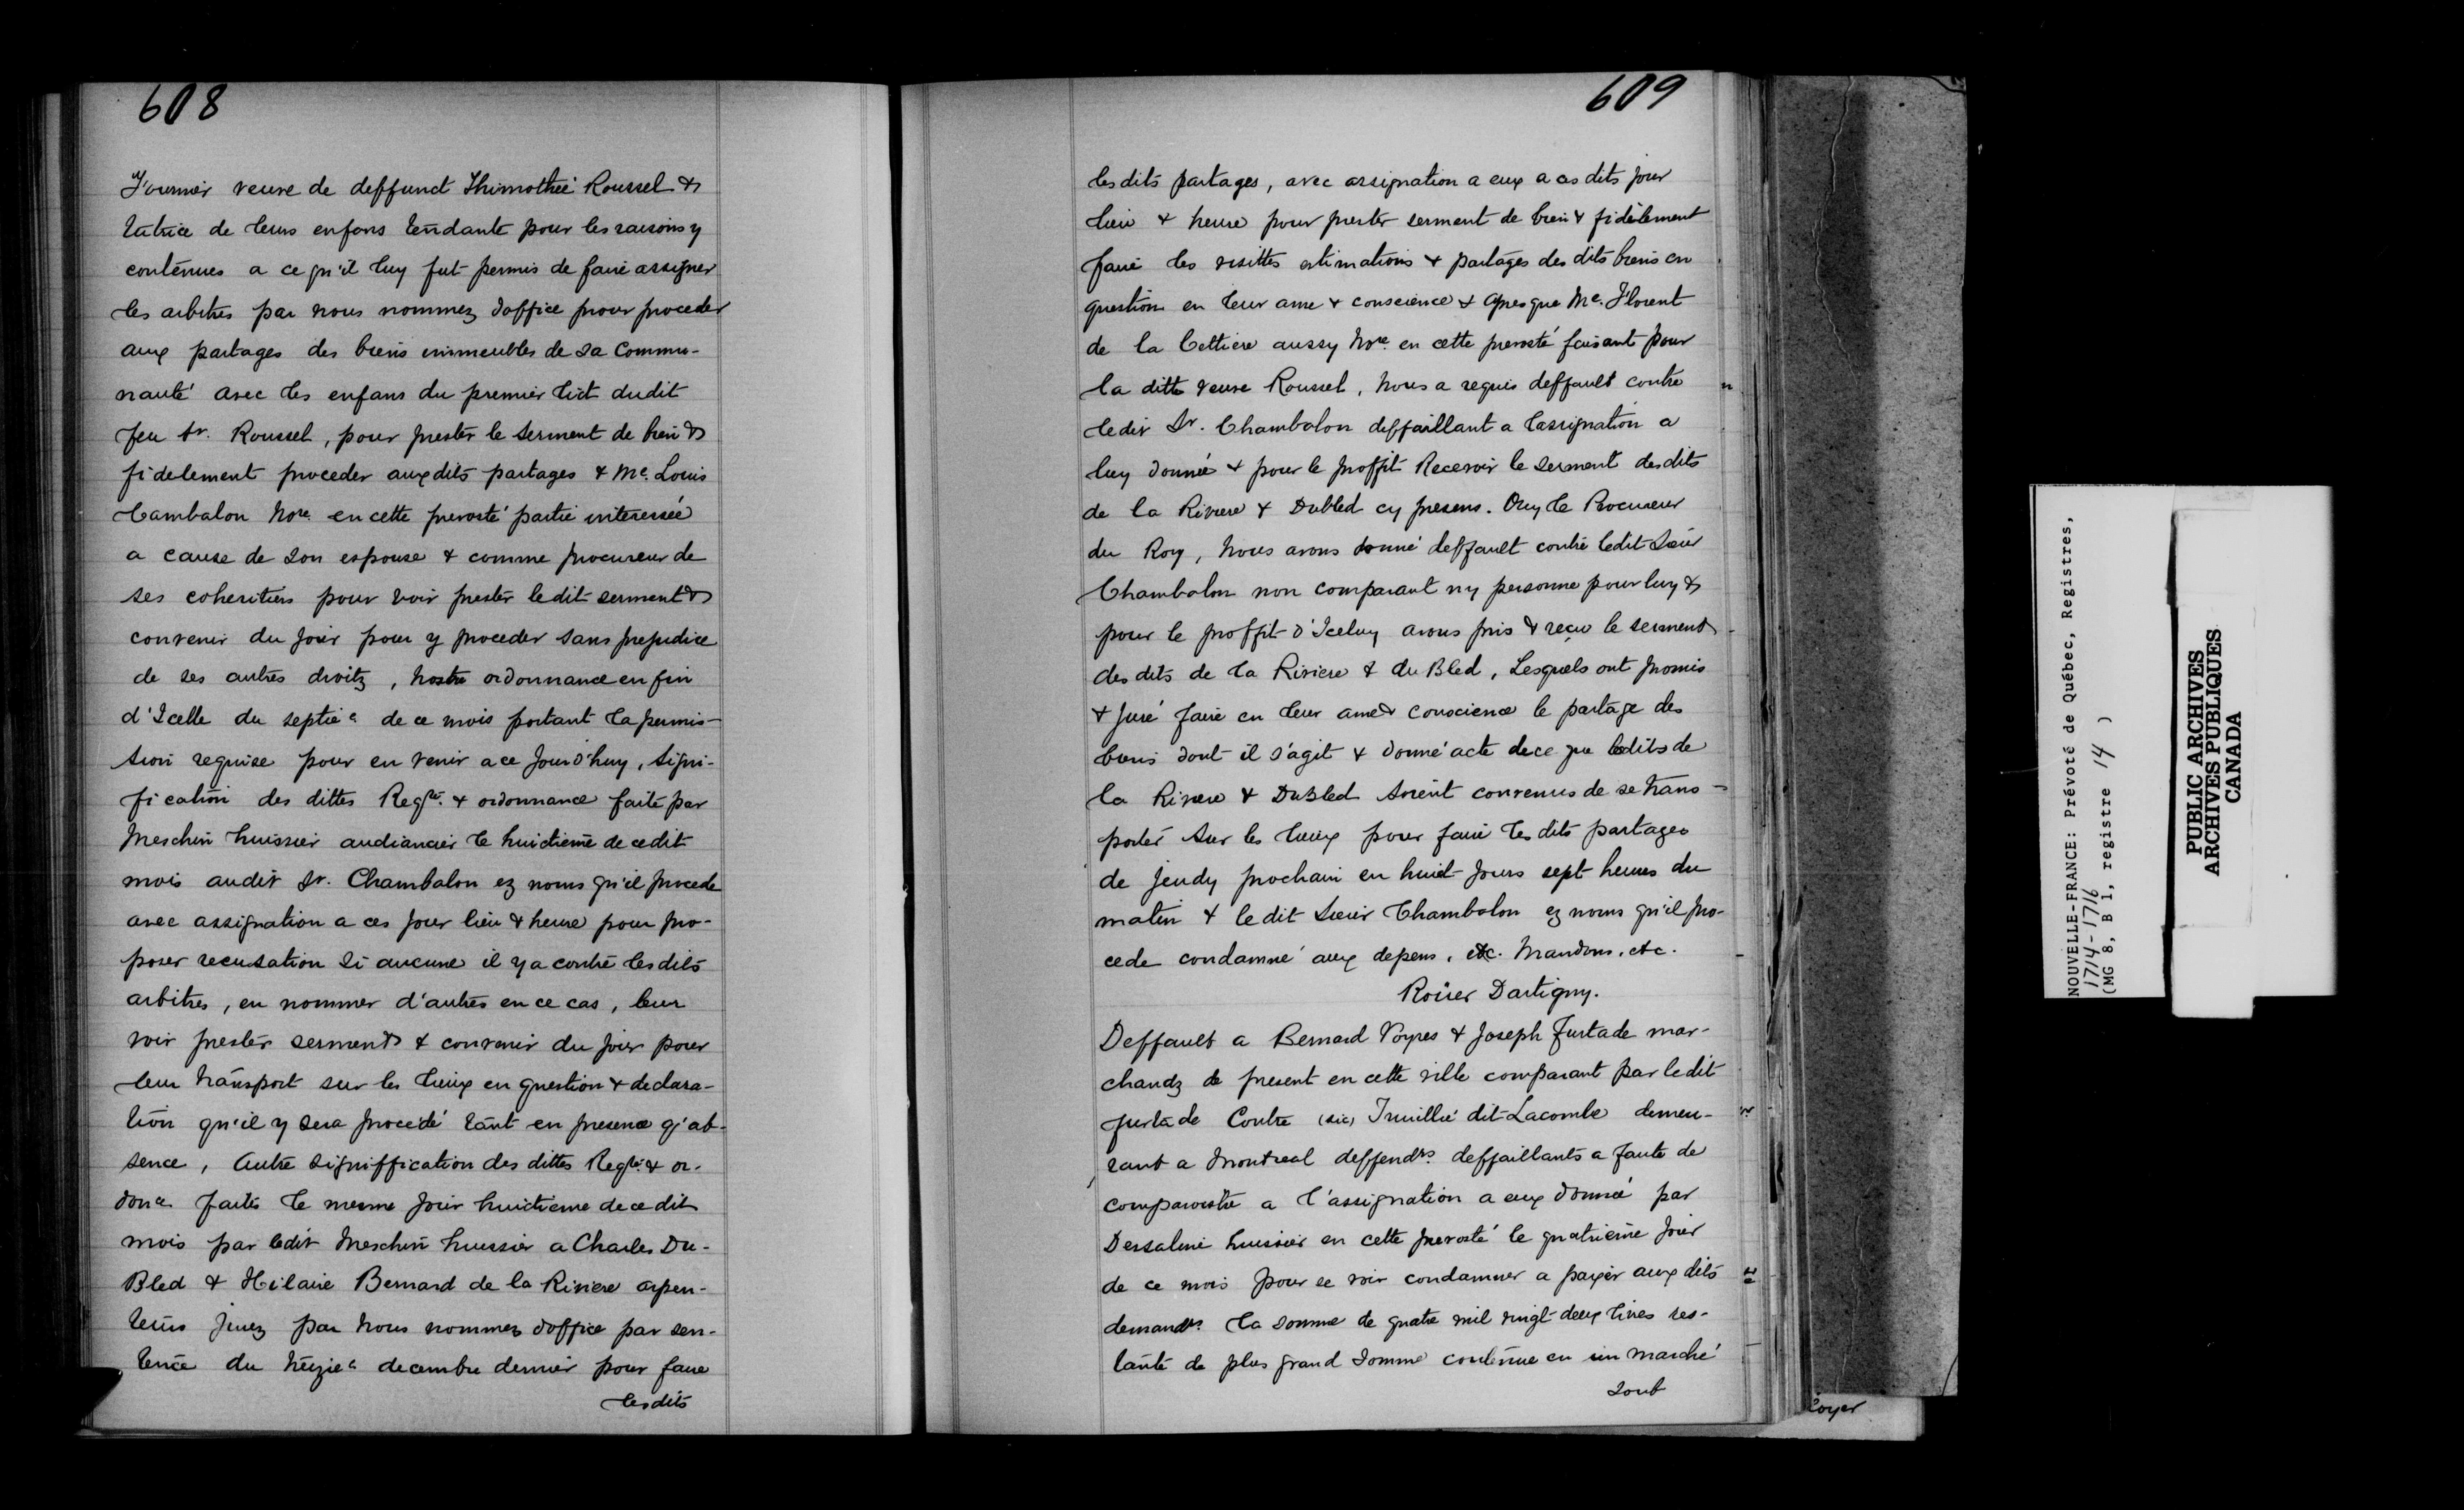 608
Fournier veuve de deffunct Thimothée Roussel &
tutrice de leurs enfans tendante pour les raisons y
contenues a ce qu'il luy fut permis de faire assigner
les arbitres par nous nommez doffice pour proceder
aux partages des biens immeubles de sa Commu-
nauté avec les enfans du premier lict dudit
feu Sr. Roussel, pour prester le serment de bien &
fidelement proceder auxdits partages & Me. Louis
Cambalon Nore. en cette prevosté partie interessée
a cause de son espouse & comme procureur de
ses coheritiers pour voir prester ledit serment &
convenir du jour pour y proceder sans prejudice
de ses autres droitz, nostre ordonnance en fin
d'Icelle du septiee de ce mois portant la permis-
sion requise pour en venir a ce Jourd'huy, signi-
fication des dittes Reqte. & ordonnance faite par
Meschin huissier audiancier le huictieme de cedit
mois audit Sr. Chambalon ez noms qu'il procede
avec assignation a ces jour lieu & heure pour pro-
poser recusation si aucune il y a contre lesdits
arbitres, en nommer d'autres en ce cas, leur
voir prester serment & convenir du jour pour
leur transport sur les lieux en question & declara-
tion qu'il y sera procédé tant en presence q'ab-
sence, Autre signiffication des dittes Reqte. & or-
donce faites le mesme jour huictieme de cedit
mois par ledit Meschin huissier a Charles Du-
Bled & Hilaire Bernard de la Riviere arpen-
teurs jurez par nous nommez doffice par sen-
tence du treziee decembre dernier pour faire
lesdits
609
lesdits partages, avec assignation a eux a ces dits jour
lieu & heure pour prester serment de bien & fidèlement
faire les visittes estimations & partages des dits biens en
question en leur ame & conscience & apres que Me. Florent
de la Cettiere aussy Nore. en cette prevosté faisant pour
la ditte veuve Roussel, nous a requis deffault contre
ledit Sr. Chambalon deffaillant a lassignation a
luy donnée & pour le proffit Recevoir le serment desdits
de la Riviere & Dubled cy presens. Ouy le Procureur
du Roy, nous avons donné deffault contre ledit Sieur
Chambalon non comparant ny personne pour luy &
pour le proffit d'Iceluy avons pris & reçu le serment
des dits de la Riviere & du Bled, Lesquels ont promis
& juré faire en leur ame & conscience le partage des
biens dont il s'agit & donné acte de ce que lesdits de
la Riviere & DuBled soient convenus de se trans-
porter sur les lieux pour faire les dits partages
de jeudy prochain en huict jours sept heures du
matin & le dit Sieur Chambalon ez noms qu'il pro-
cede condamné aux depens, etc. Mandons, etc.
Roüer Dartigny.
Deffault a Bernard Voyres & Joseph Furtade mar-
chandz de present en cette ville comparant par ledit
furtade Contre (sic) Truillié dit Lacombe demeu-
rant a Montreal deffendrs. deffaillants a faute de
comparoistre a l'assignation a eux donnée par
Dessaline huissier en cette prevosté le quatrieme jour
de ce mois pour se voir condamner a payer aux dits
demandrs. la somme de quatre mil vingt-deux livres res-
tante de plus grand somme contenue en un marché
sont
loyer
NOUVELLE-FRANCE: Prévoté de Québec, Registres,
1714-1716
(MG 8, B 1, registre 14 )
PUBLIC ARCHIVES
ARCHIVES PUBLIQUES
CANADA